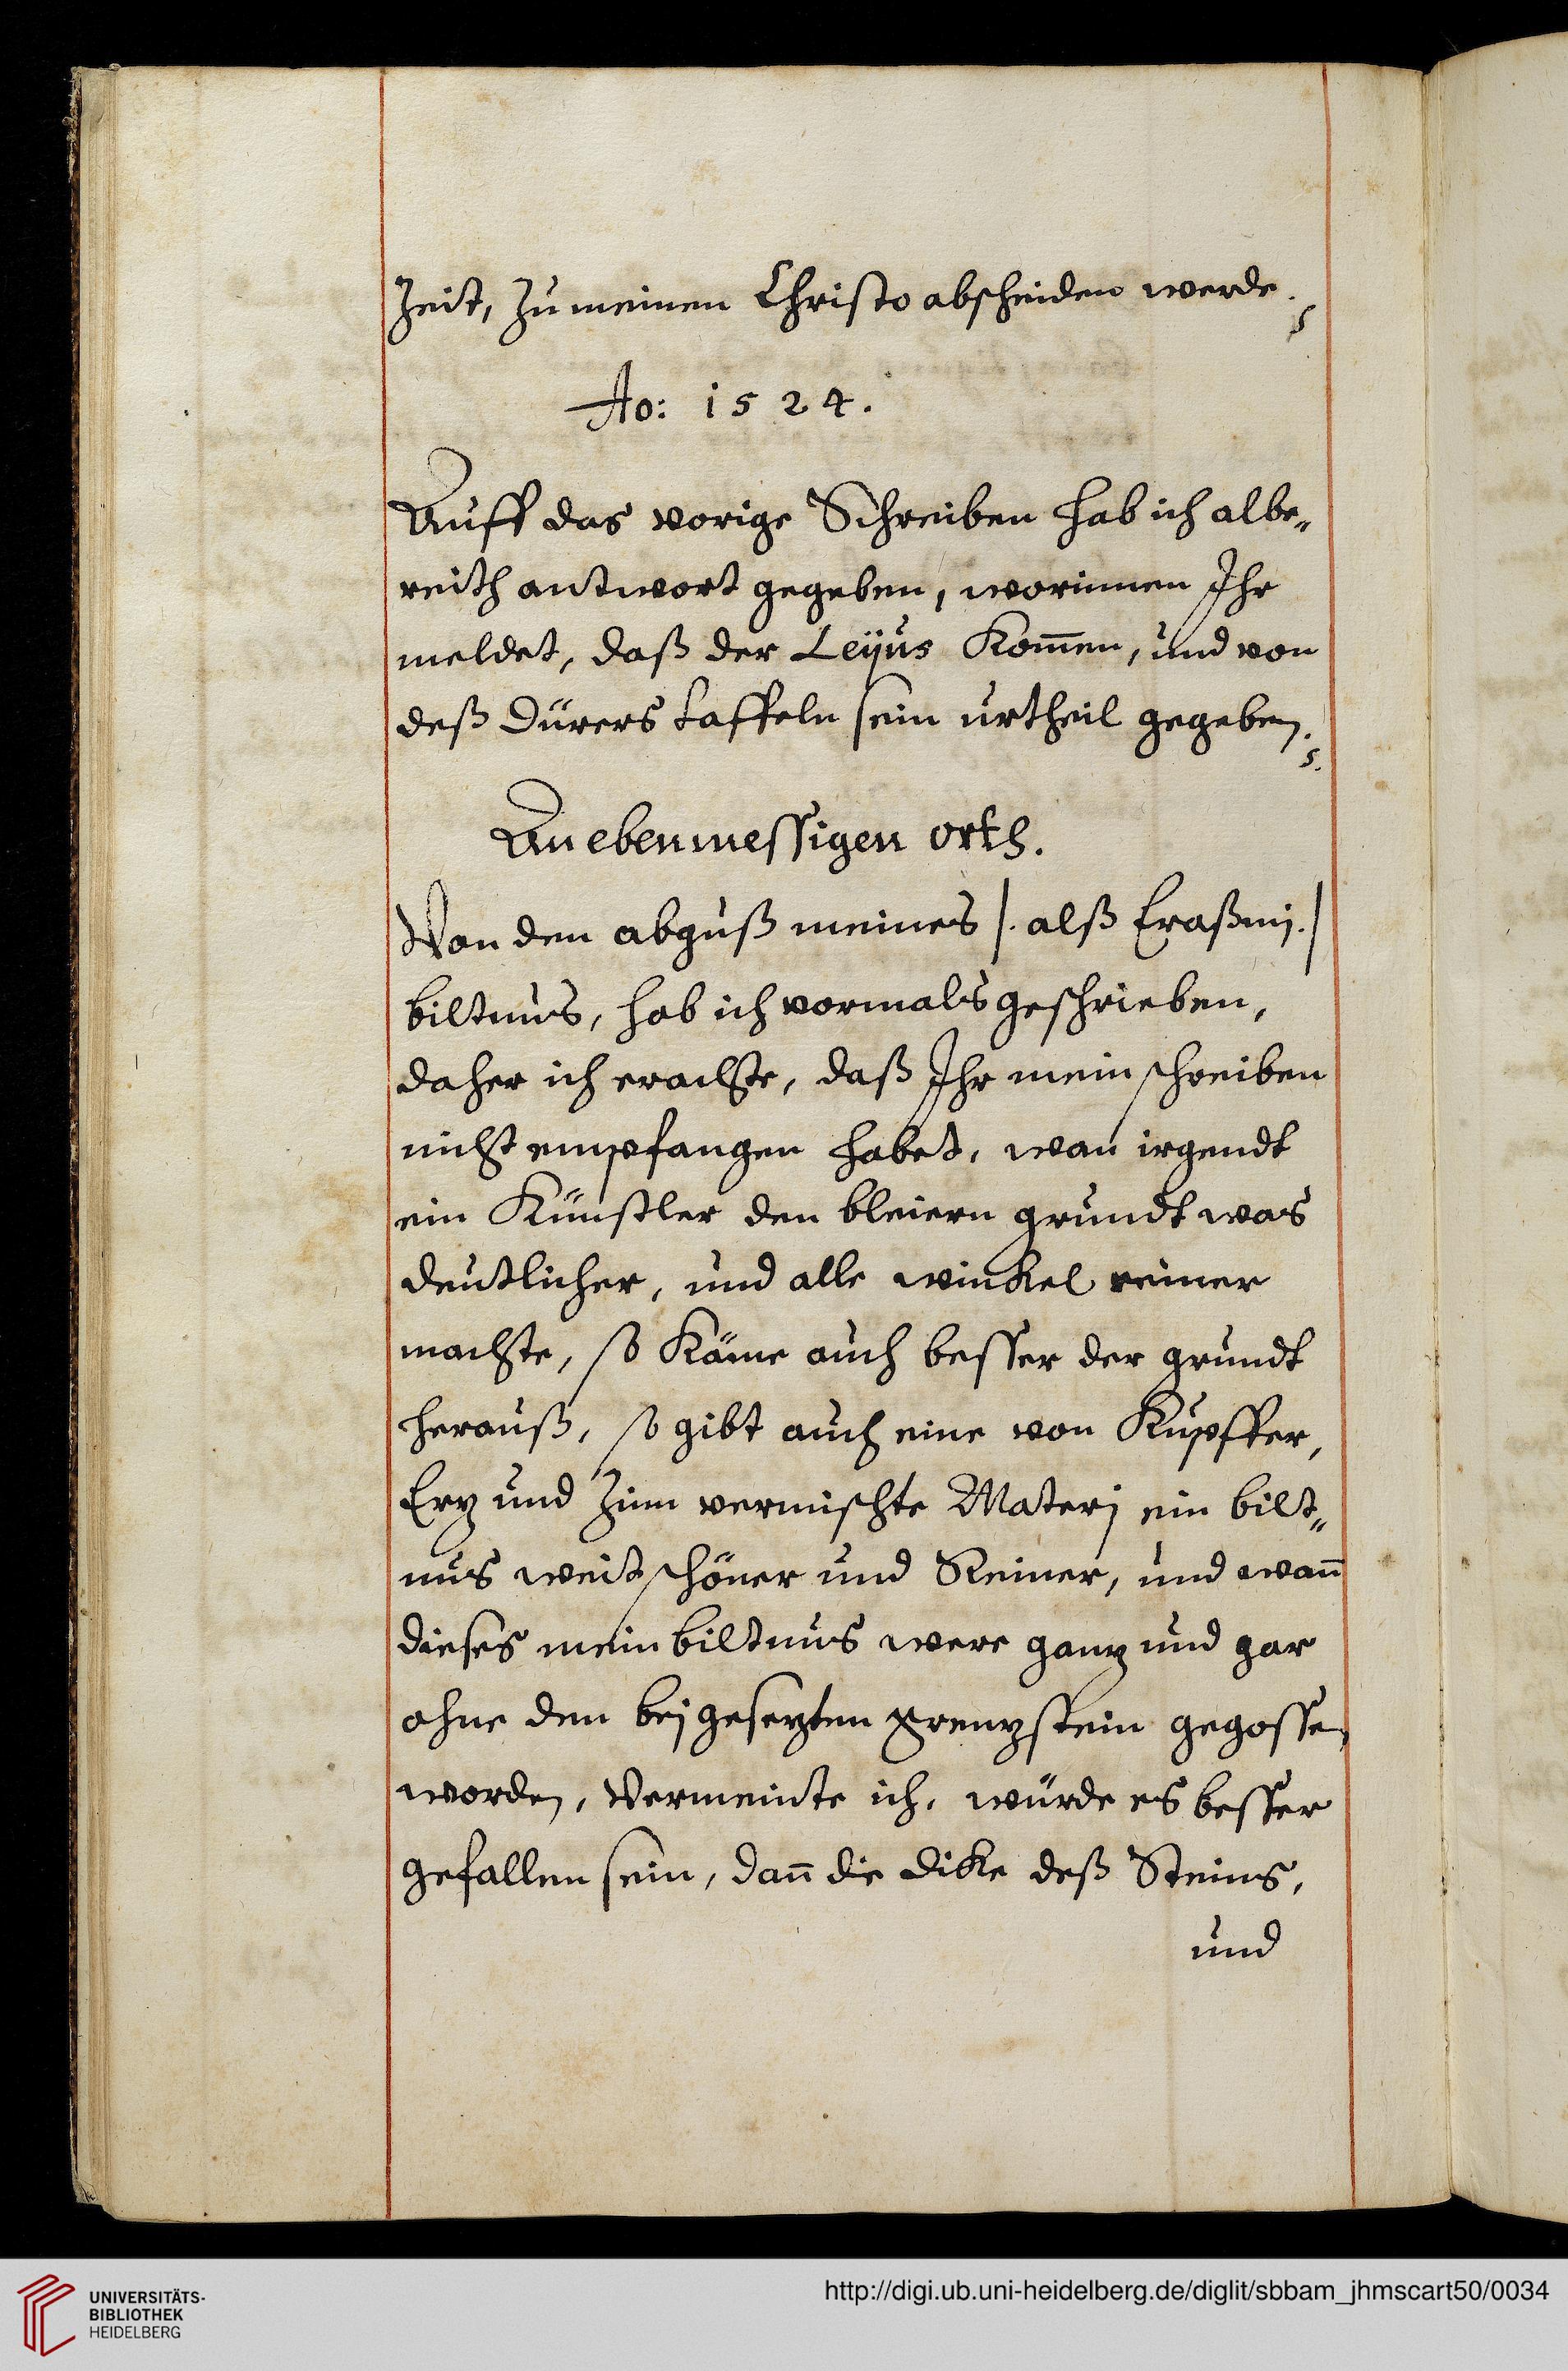 Zeit, zu meinen Christo abscheiden werde.
Ao: 1524.
Auff das vorige Schreiben hab ich albe„
reith antwort gegeben, worinnen Ihr
meldet, daß der Leÿus Kom̄en, und von
deß Dürers taffeln sein urtheil gegeben.
An ebenmessigen orth.
Von den abguß meines /. alß Eraßmj. /
biltnus, hab ich vormals geschrieben,
daher ich erachte, daß Ihr mein schreiben
nicht empfangen habet, wan irgendt
ein Künstler den bleiern grundt was
deutlicher, und alle winckel reiner
machte, so Käme auch besser der grundt
herauß, so gibt auch eine von Kupffer,
Erz und Zinn vermischte Materj ein bilt„
nus weit schöner und Reiner, und wan̄
dieses mein biltnus were ganz und gar
ohne den bej gesezten grenzstein gegossen
worden, Vermeinte ich, würde es besser
gefallen sein, dan̄ die dicke deß Steins,
und
UNIVERSITÄTS-
BIBLIOTHEK
HEIDELBERG
http://digi.ub.uni-heidelberg.de/diglit/sbbam_jhmscart50/0034